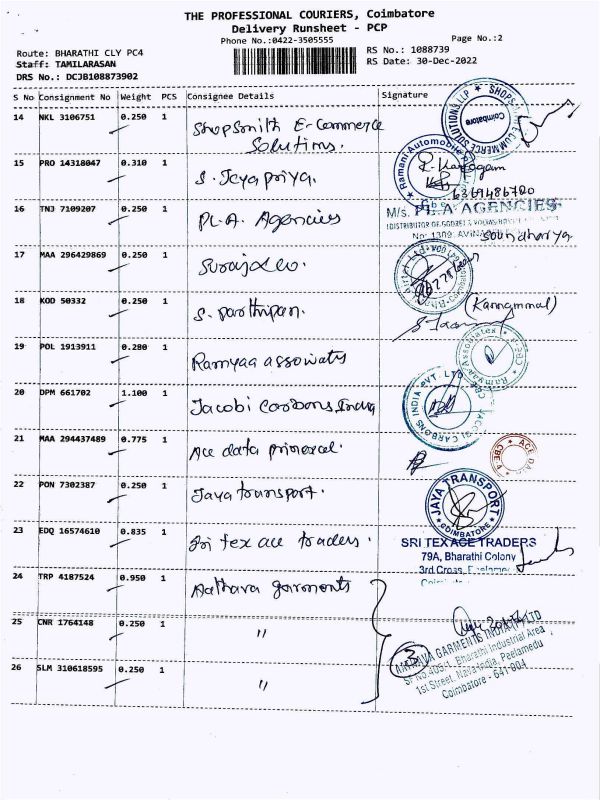 THE PROFESSIONAL COURIERS, Coimbatore
Delivery Runsheet - PCP
Phone No.:0422-3505555
Page No.:2
Route: BHARATHI CLY PC4
RS No.: 1088739
Staff: TAMILARASAN
RS Date: 30-Dec-2022
DRS No.: DCJB108873902
S No Consignment No Weight PCS Consignee Details Signature
14 NKL 3106751 0.250 1 Shopsmith E-Commerce
Solutions.
SHOPS
E COMMERCE SOLUTIONS LLP
Coimbatore
15 PRO 14318047 0.310 1 S. Jeyapriya.
Ramani Automobile
6369486700
16 TNJ 7109207 0.250 1 PL.A. Agencies
M/s. PL.A AGENCIES
No: 1309, AVINA
Soundharya.
17 MAA 296429869 0.250 1
18 KOD 50332 0.250 1 S. Parthipan.
(Kannammal)
19 POL 1913911 0.280 1 Ramyaa associates
Ramyaa Associates
20 DPM 661702 1.100 1 Jacobi carbons India
JACOBI CARBONS INDIA PVT. LTD
21 MAA 294437489 0.775 1 Ace data
ACE DA
CBE
22 PON 7302387 0.250 1 Jaya transport.
JAYA TRANSPORT
COIMBATORE
23 EDQ 16574610 0.835 1 Sri tex ace traders.
SRI TEX AGE TRADERS
79A, Bharathi Colony
3rd Cross,
24 TRP 4187524 0.950 1 Aathava garments
25 CNR 1764148 0.250 1 "
26 SLM 310618595 0.250 1 "
3
AATHAVA GARMENTS INDIA (P) LTD
SF No.405/1, Bharathi Industrial Area
1st Street, Nava India, Peelamedu
Coimbatore - 641 004